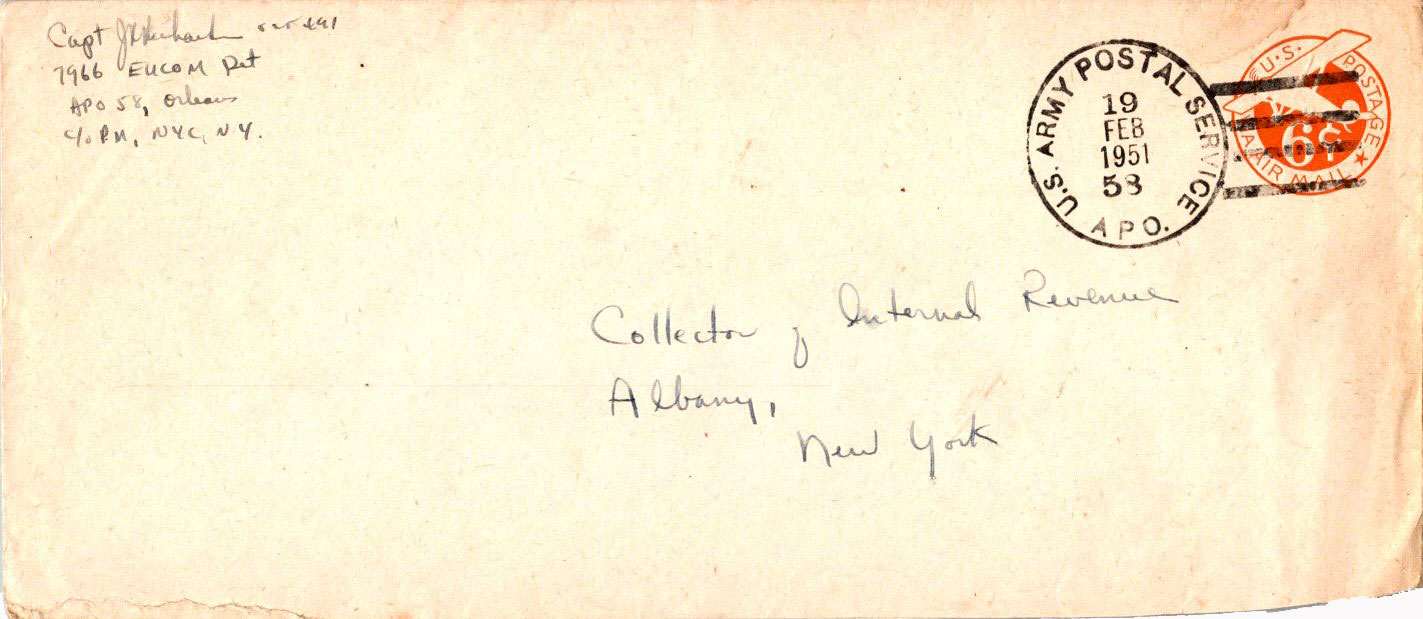 Capt
7966 EUCOM Det
APO 58, Orleans
c/o PM, NYC, NY.
U.S. ARMY POSTAL SERVICE
19
FEB
1951
58
A P O.
U.S. POSTAGE
6¢
AIR MAIL
Collector of Internal Revenue
Albany,
New York